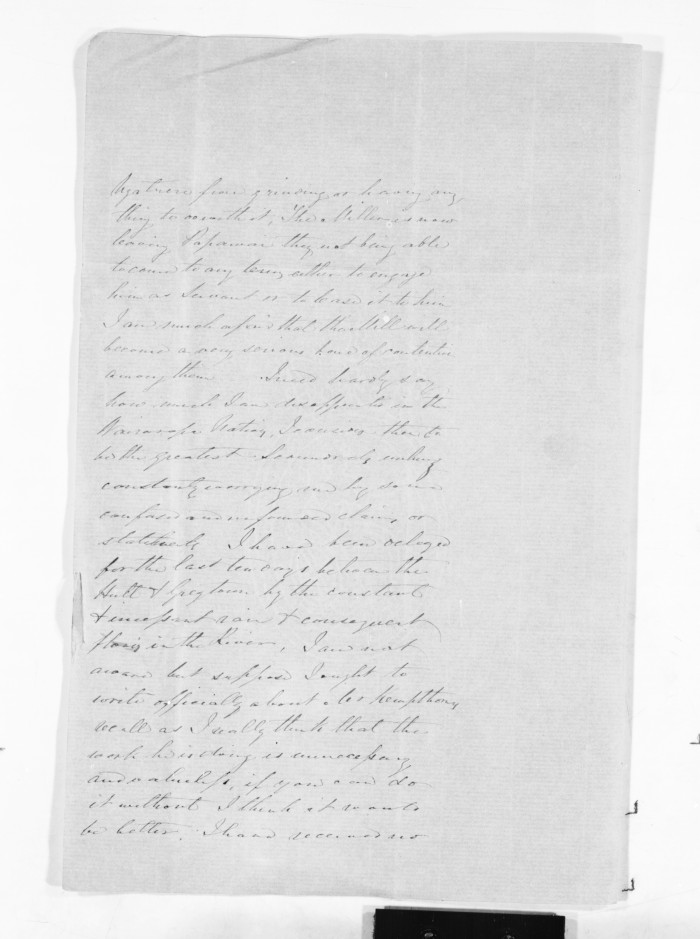 from grinding or having any
thing to do with it, The Miller is now
leaving Papawai they not being able
to come to any terms either to engage
him as Servant or to lease it to him
I am much afraid that the Mill will
become a very serious bone of contention
among them I need hardly say
how much I am disappointed in the
Wairarapa Natives, I them to
be the greatest
constantly worrying me by some
confused and unfounded claims or
statements I have been delayed
for the last ten days between the
Hutt & Greytown by the constant
& incessant rain & consequent
in the River, I am not
aware but suppose I ought to
write officially about Mr Kempthorne
recall as I really think that the
work he is doing is unnecessary
and valueless, if you can do
it without I think it would
be better. I have received no